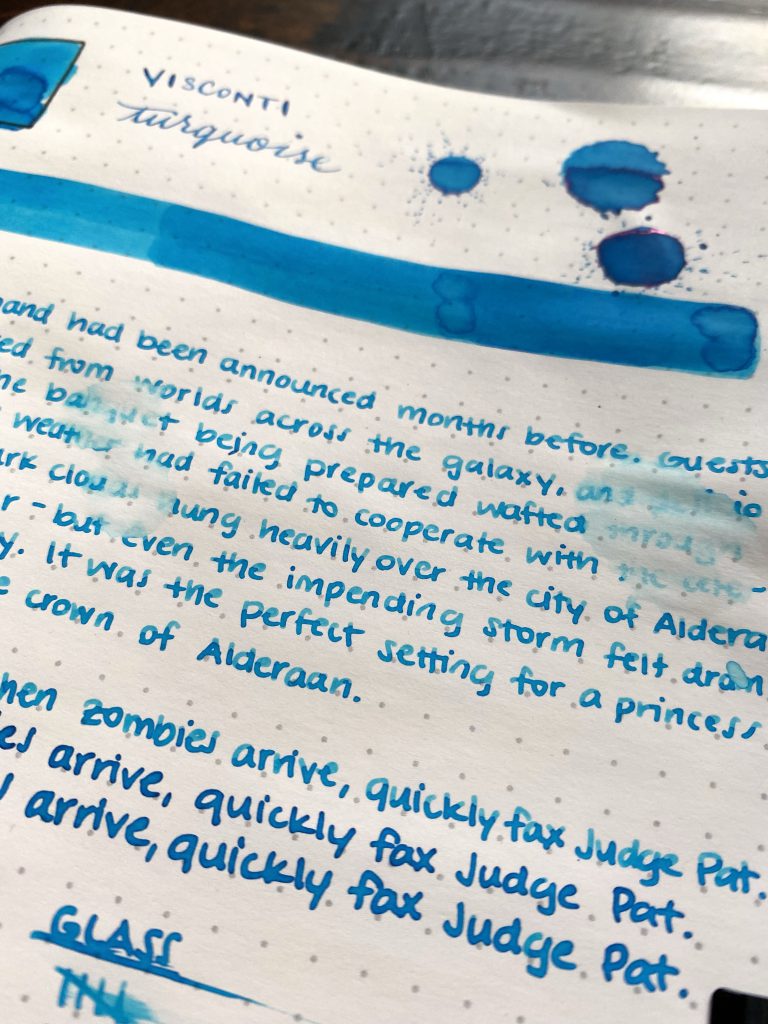 VISCONTI
turquoise
and had been announced months before. Guests
ed from worlds across the galaxy, and
he banquet being prepared wafted through
weather had failed to cooperate with the
ark clouds hung heavily over the city of Aldera
r - but even the impending storm felt dram
y. It was the perfect setting for a princess
e crown of Alderaan.
hen zombies arrive, quickly fax Judge Pat.
es arrive, quickly fax Judge Pat.
arrive, quickly fax Judge Pat.
GLASS